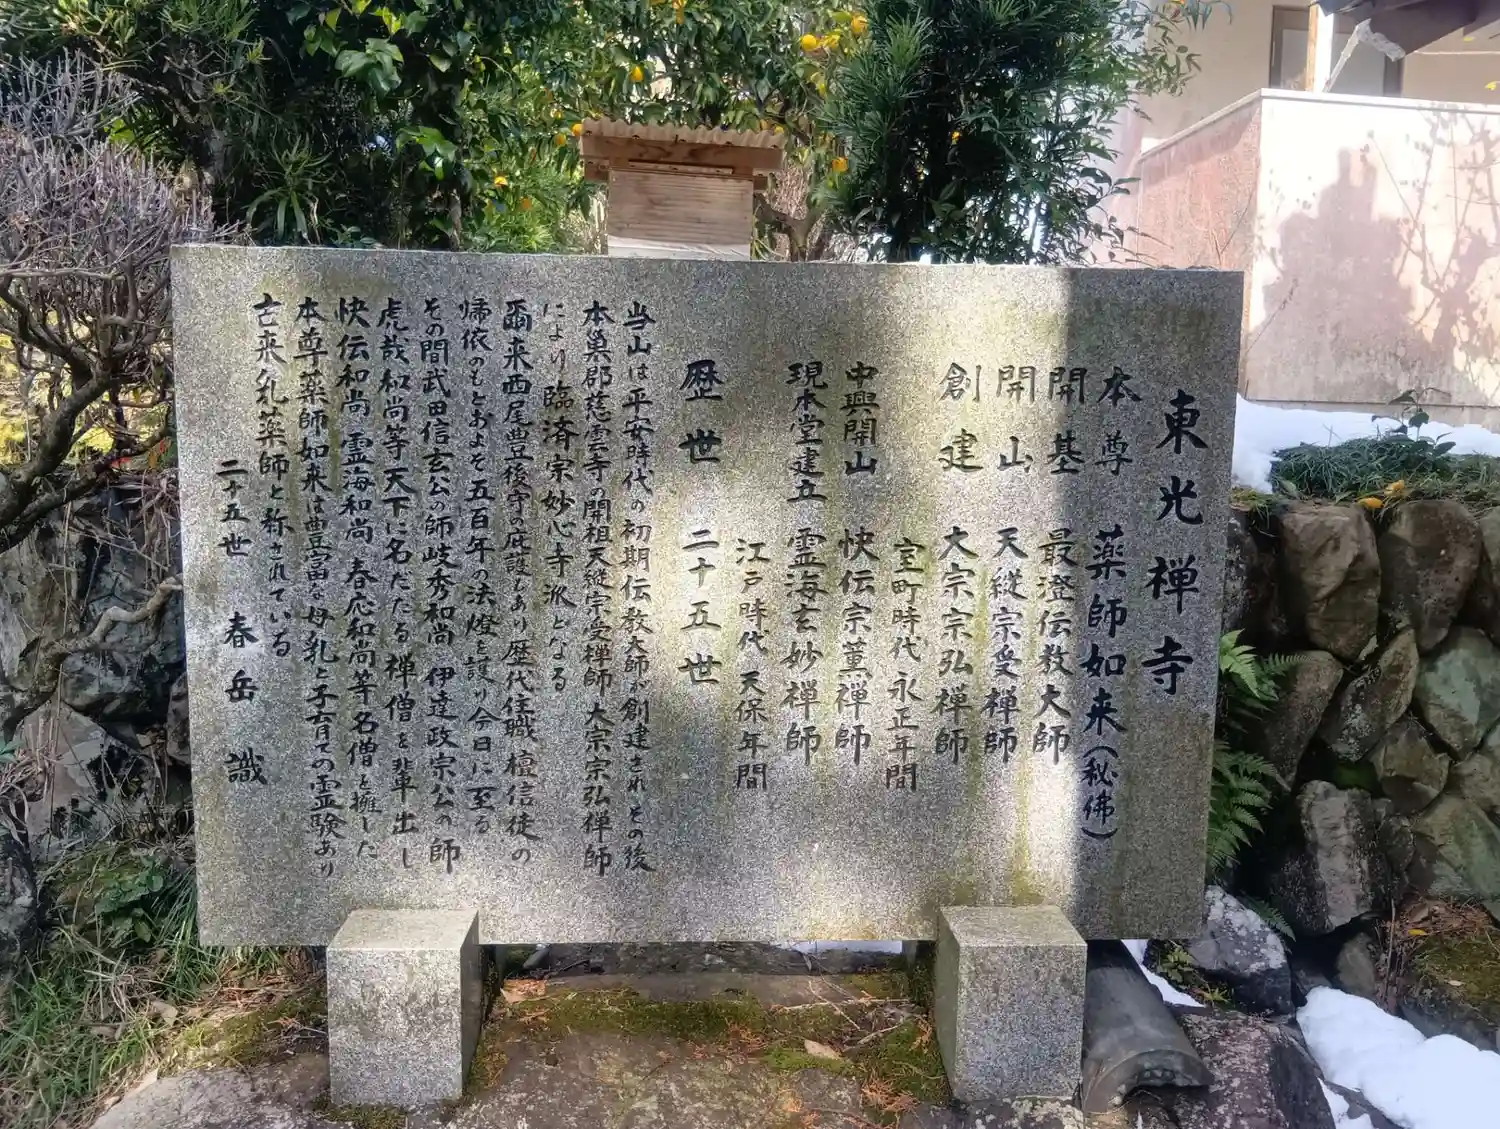 東光禅寺
本尊 薬師如来(秘佛)
開基 最澄伝教大師
開山 天縦宗受禅師
創建 大宗宗弘禅師
室町時代 永正年間
中興開山 快伝宗薫禅師
現本堂建立 霊海玄妙禅師
江戸時代 天保年間
歴世 二十五世
当山は平安時代の初期伝教大師が創建されその後
本巣郡慈雲寺の開祖天縦宗受禅師 大宗宗弘禅師
により臨済宗妙心寺派となる
爾来西尾豊後守の庇護もあり歴代住職檀信徒の
帰依のもとおよそ五百年の法燈を護り今日に至る
その間武田信玄公の師岐秀和尚 伊達政宗公の師
虎哉和尚等天下に名だたる禅僧を輩出し
快伝和尚 霊海和尚 春応和尚等名僧を擁した
本尊薬師如来は豊富な母乳と子育ての霊験あり
古来乳薬師と称されている
二十五世 春岳 識